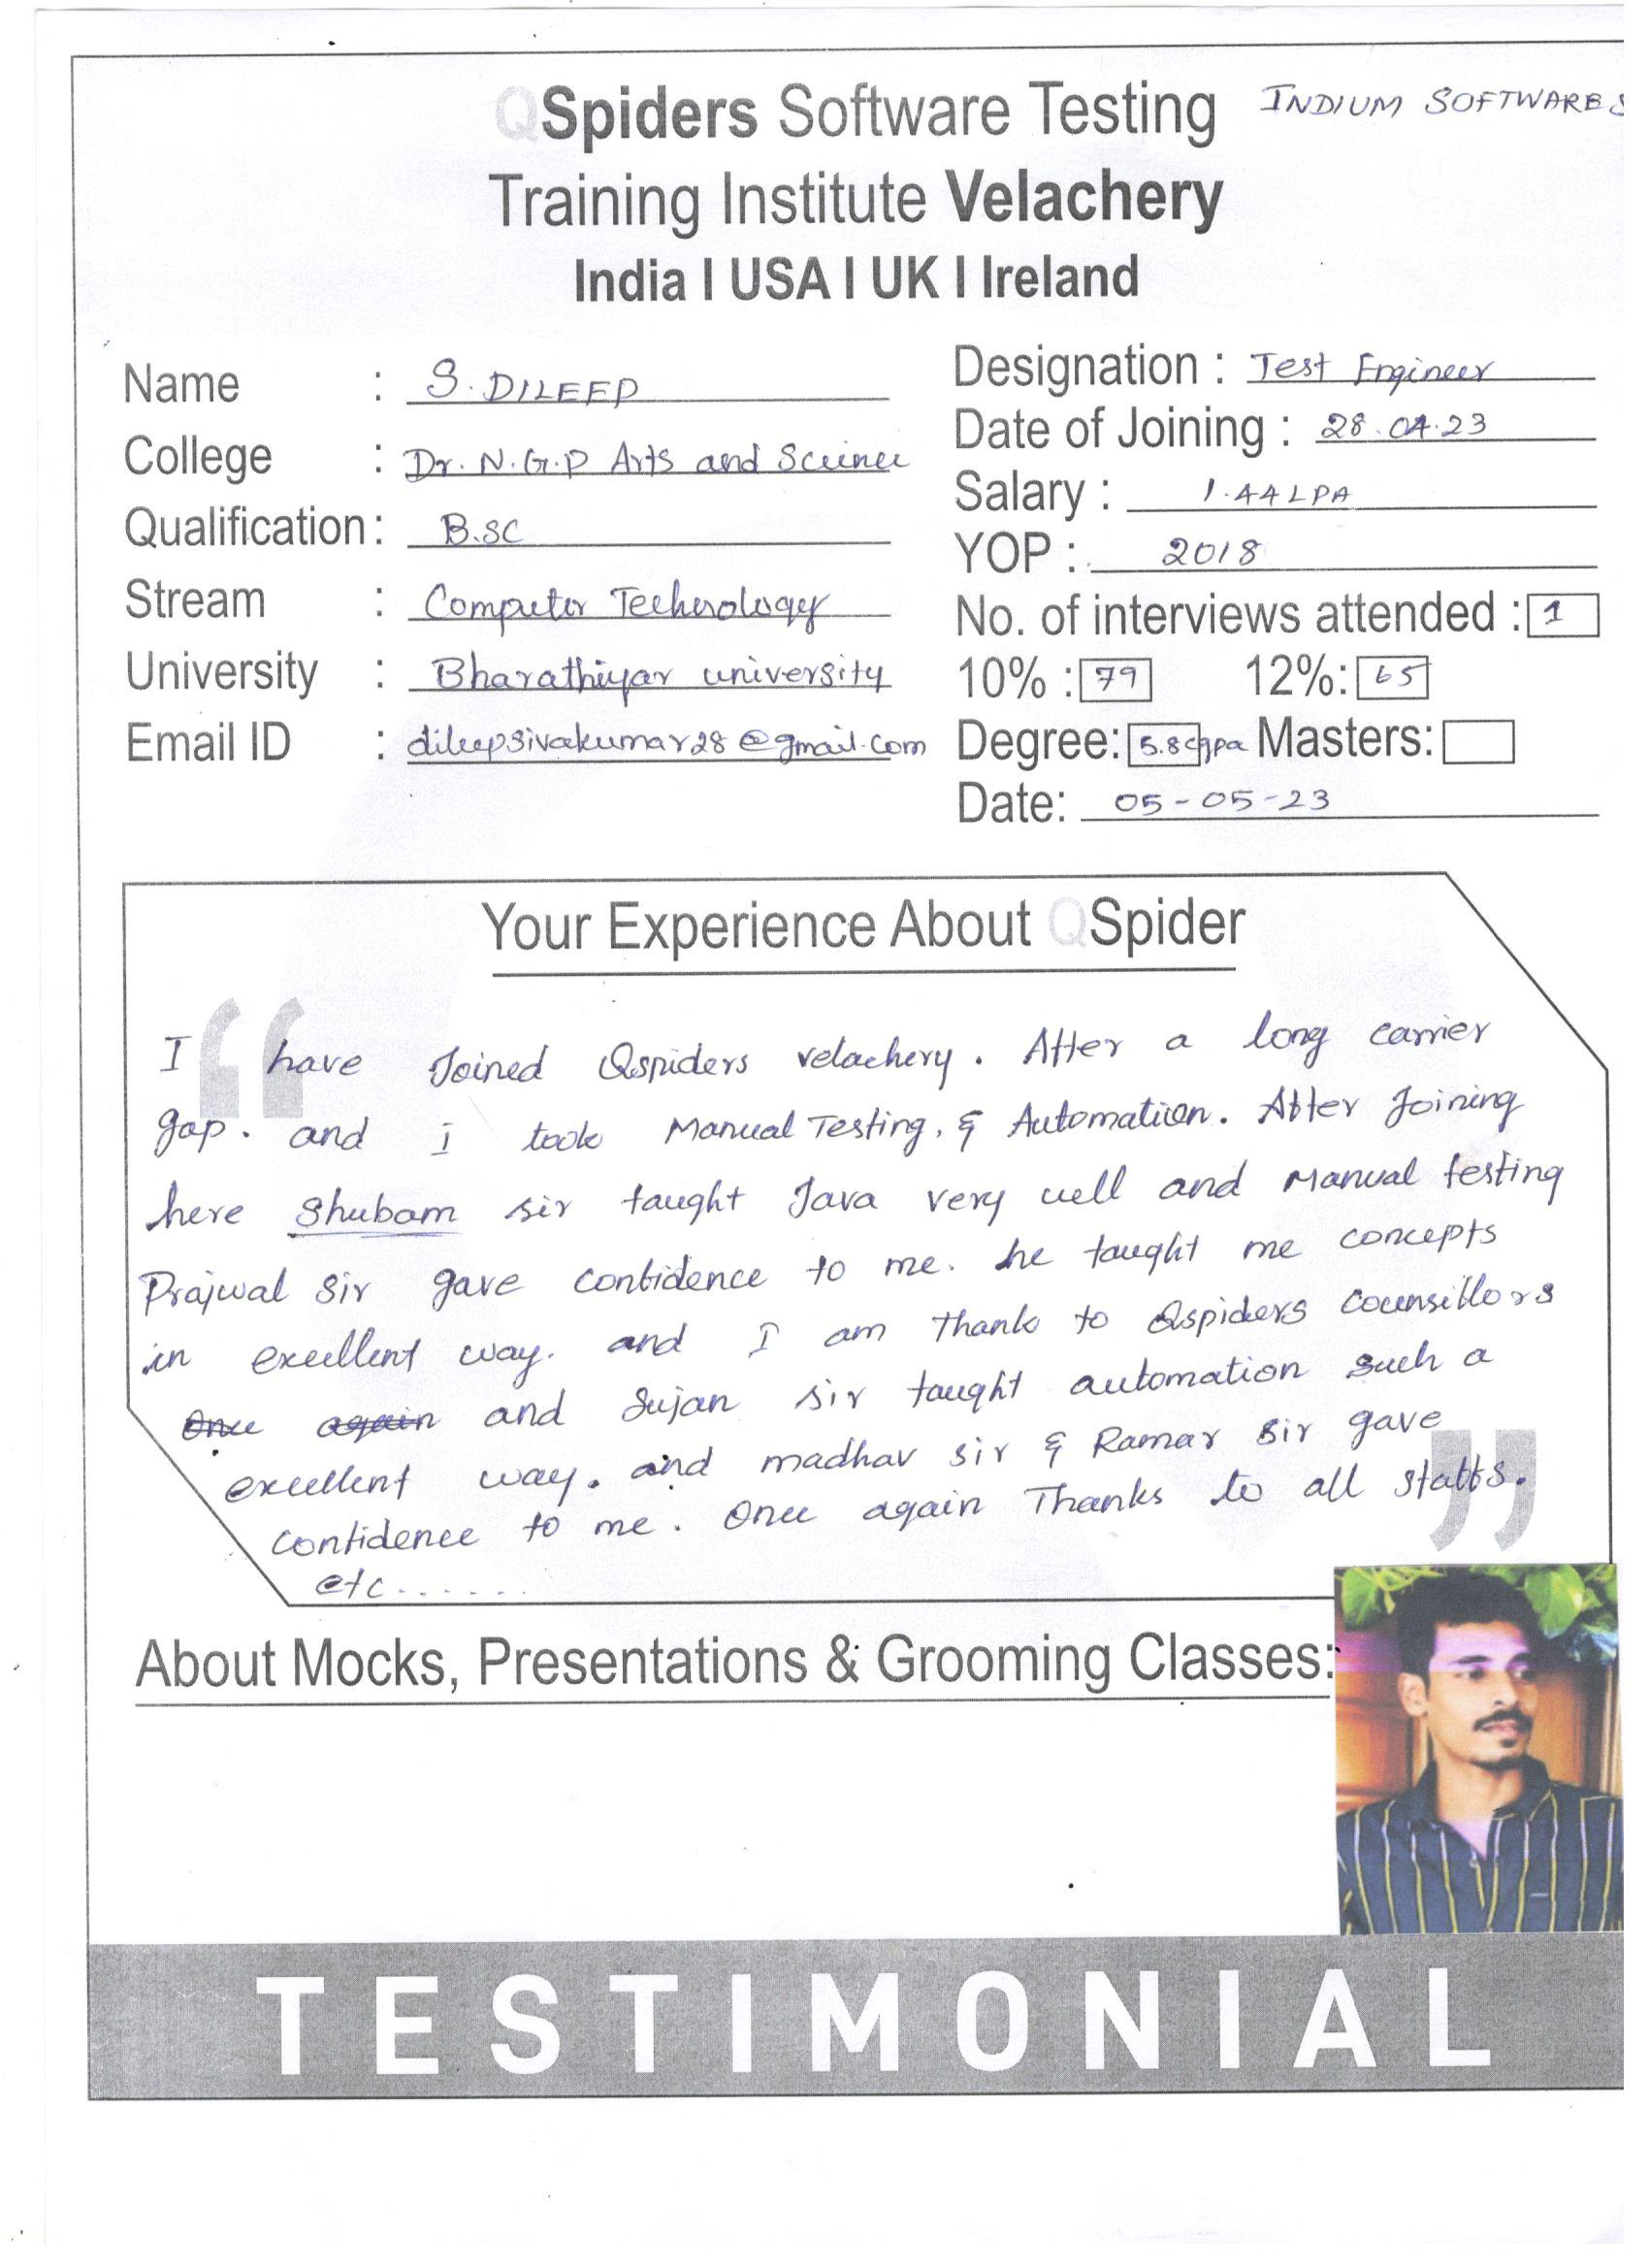 QSpiders Software Testing INDIUM SOFTWARES
Training Institute Velachery
India I USA I UK I Ireland
Name : S. DILEEP
College : Dr. N.G.P Arts and Science
Qualification : B.SC
Stream : Computer Technology
University : Bharathiyar university
Email ID : dileepsivakumar28@gmail.com
Designation : Test Engineer
Date of Joining : 28.04.23
Salary : 1.44LPA
YOP : 2018
No. of interviews attended : 1
10% : 79 12%: 65
Degree: 5.8cgpa Masters:
Date: 05-05-23
Your Experience About QSpider
I have Joined Qspiders velachery. After a long carrier
gap. and i took Manual Testing, & Automation. After Joining
here Shubam sir taught Java very well and Manual testing
Prajwal sir gave confidence to me. he taught me concepts
in excellent way. and I am thank to Qspiders counsillors
Once again and Sujan sir taught automation such a
excellent way. and madhav sir & Ramar sir gave
confidence to me. Once again Thanks to all staffs.
etc......
About Mocks, Presentations & Grooming Classes:
TESTIMONIAL